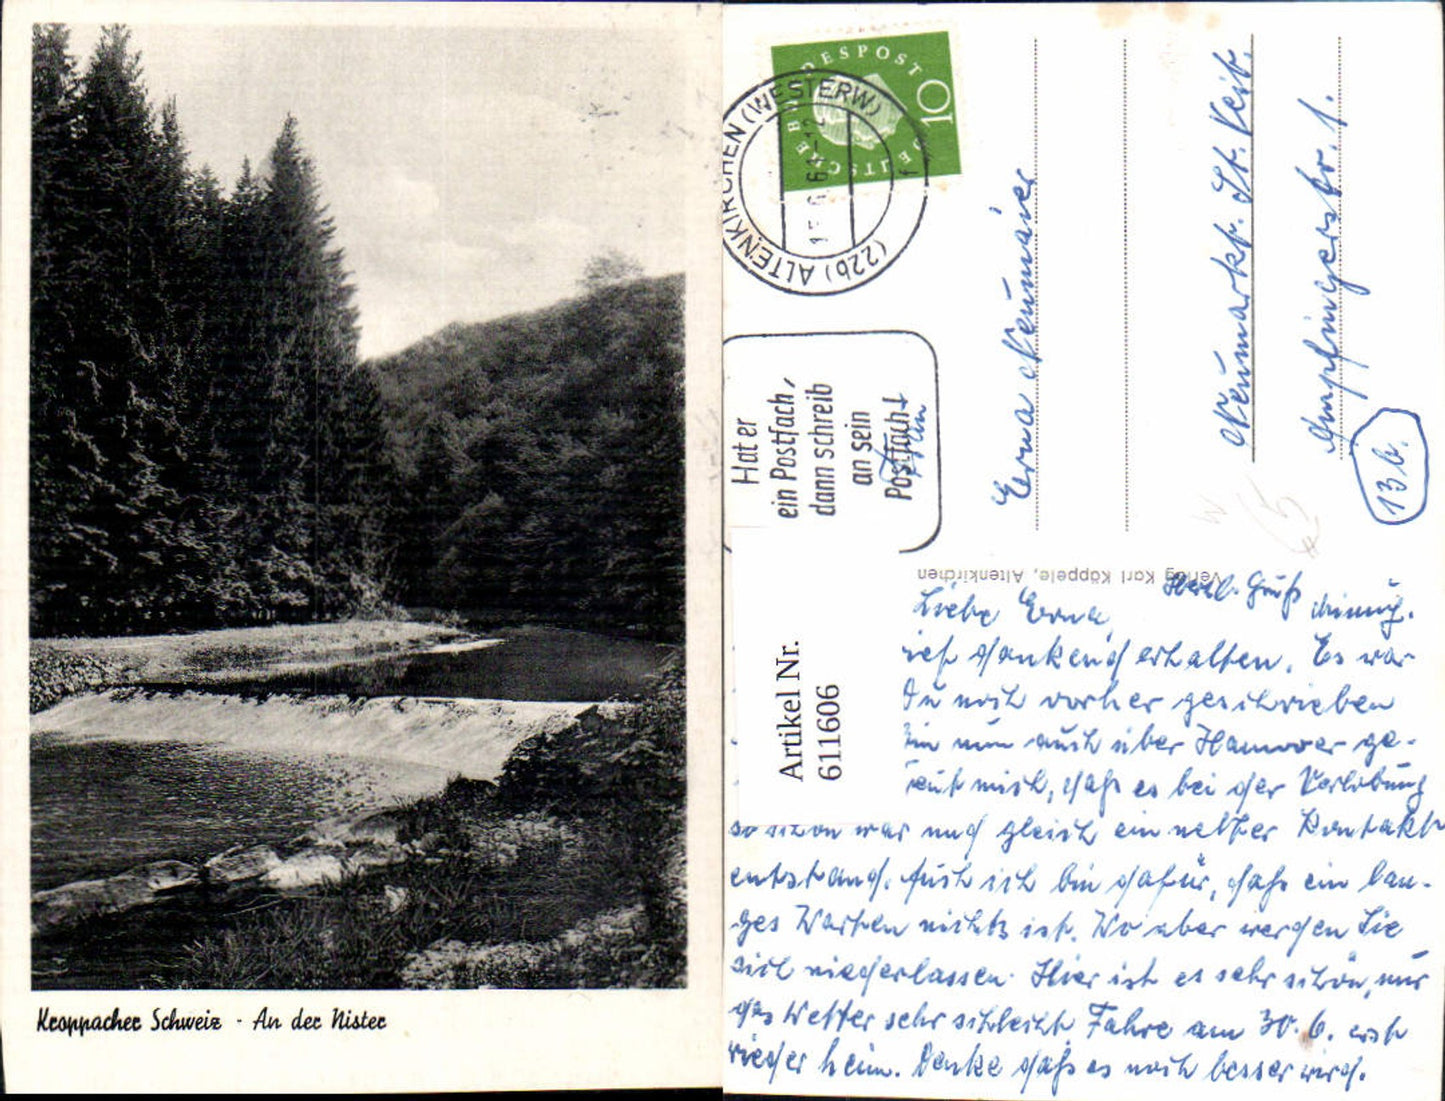 Kroppacher Schweiz - An der Nister
DEUTSCHE BUNDESPOST
10
(22b) ALTENKIRCHEN (WESTERW)
f
Hat er
ein Postfach,
dann schreib
an sein
Postfach!
Erna Neumaier
Neumarkt. St. Veit.
1.
13b.
Verlag Karl Käppele, Altenkirchen
Artikel Nr.
611606
Herzl. Gruß
Liebe Erna,
ich dankend erhalten. Es war
Du noch vorher geschrieben
nun auch über Hannover ge-
mich, daß es bei der Verlobung
so schön war und gleich ein netter Kontakt
entstand. Auch ich bin dafür, daß ein lan-
ges Warten nichts ist. Wo aber werden Sie
sich niederlassen. Hier ist es sehr schön, nur
das Wetter sehr schlecht. Fahre am 30.6. erst
wieder heim. Denke daß es noch besser wird.